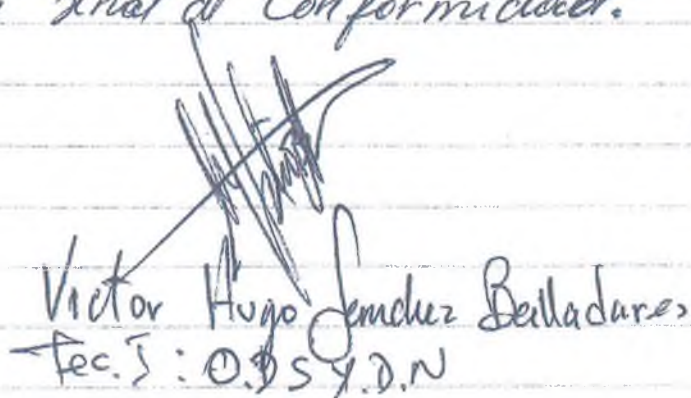 señal de Conformidad.
Victor Hugo Sanchez Balladares
Tec. I : O.D S Y.D.N